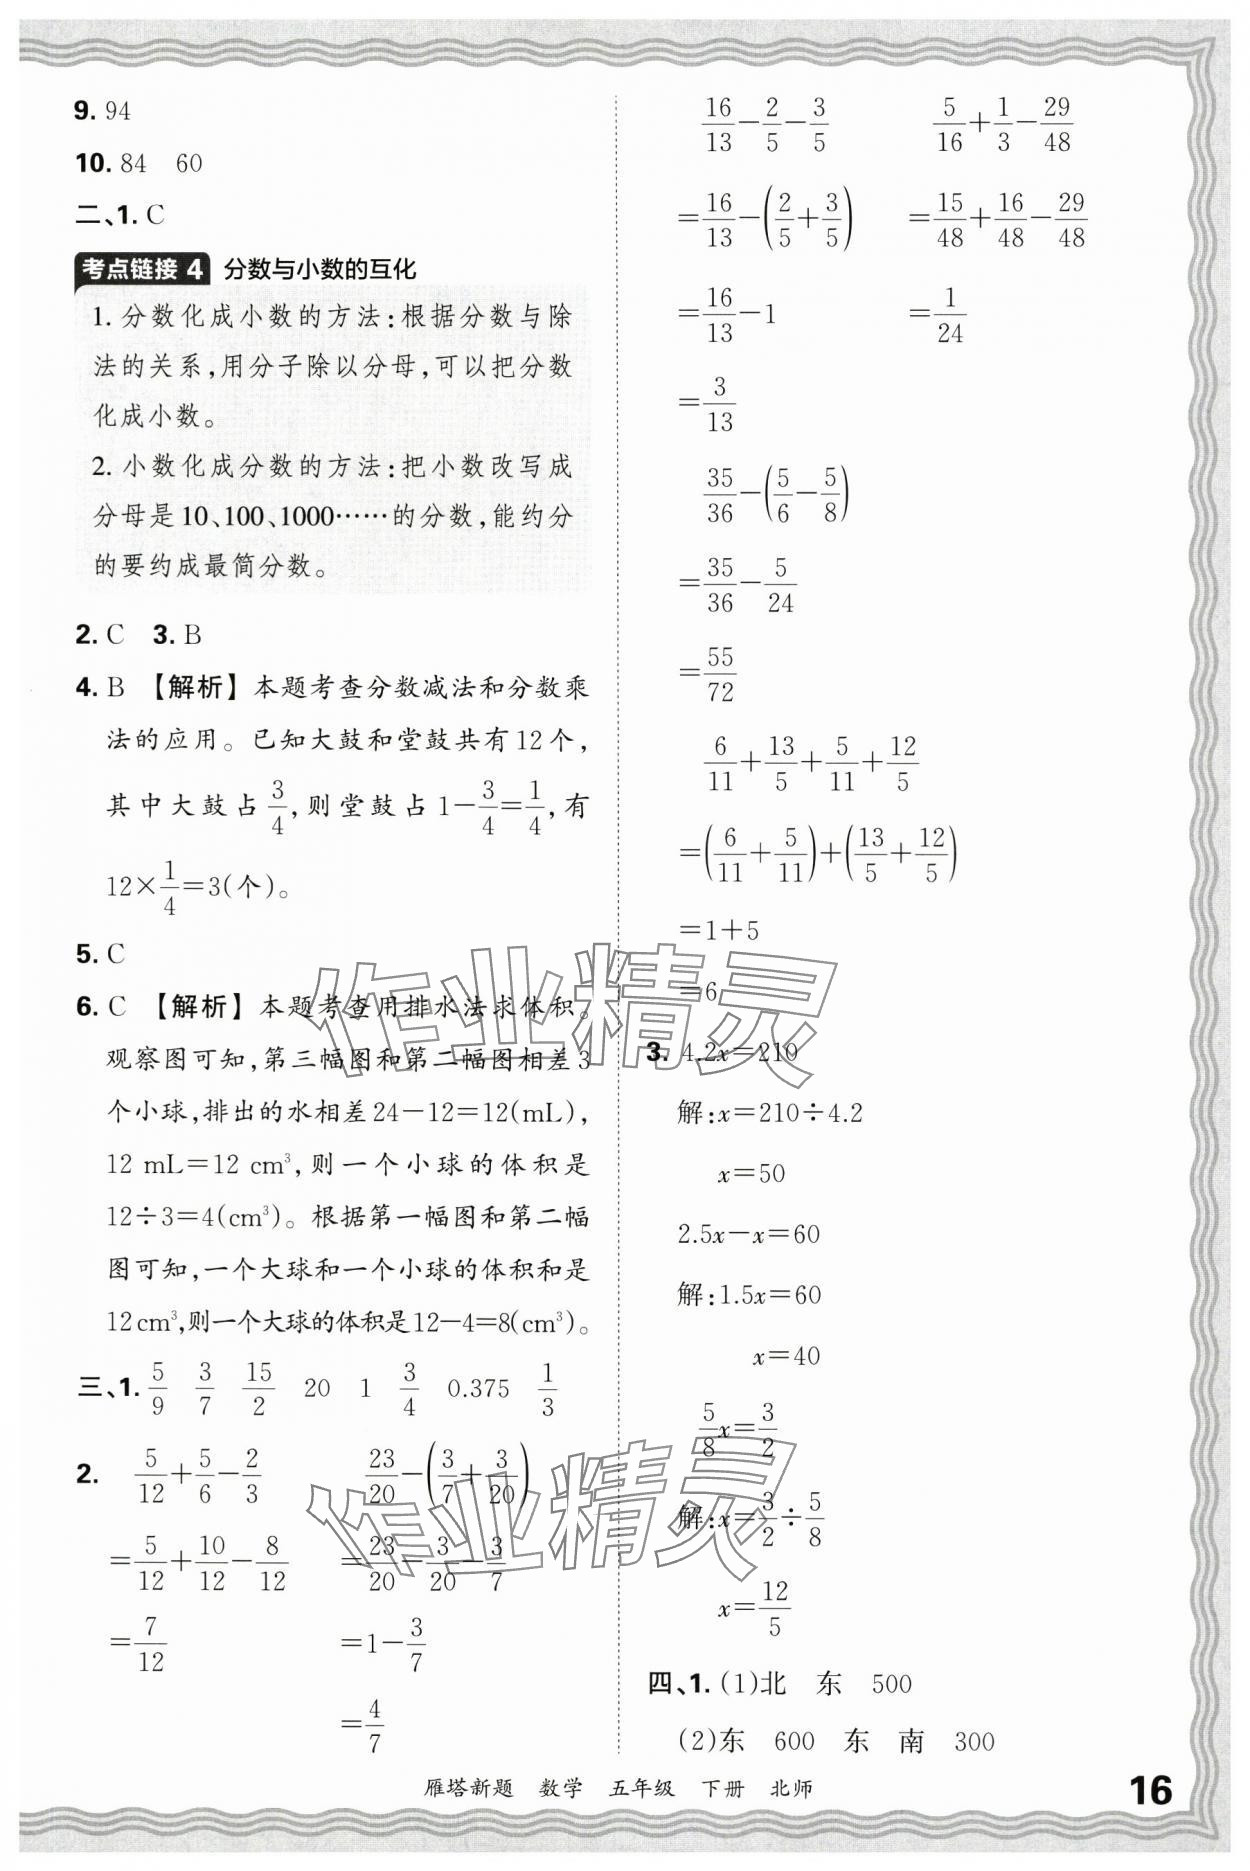 9. 94
10. 84 60
二、1. C
考点链接 4 分数与小数的互化
1. 分数化成小数的方法:根据分数与除
法的关系,用分子除以分母,可以把分数
化成小数。
2. 小数化成分数的方法:把小数改写成
分母是 10、100、1000……的分数,能约分
的要约成最简分数。
2. C 3. B
4. B 【解析】本题考查分数减法和分数乘
法的应用。已知大鼓和堂鼓共有12个,
其中大鼓占3/4,则堂鼓占1-3/4=1/4,有
12×1/4=3(个)。
5. C
6. C 【解析】本题考查用排水法求体积。
观察图可知,第三幅图和第二幅图相差3
个小球,排出的水相差24-12=12(mL),
12 mL=12 cm³,则一个小球的体积是
12÷3=4(cm³)。根据第一幅图和第二幅
图可知,一个大球和一个小球的体积和是
12cm³,则一个大球的体积是12-4=8(cm³)。
三、1. 5/9 3/7 15/2 20 1 3/4 0.375 1/3
2. 5/12+5/6-2/3 23/20-(3/7+3/20)
=5/12+10/12-8/12 =23/20-3/20-3/7
=7/12 =1-3/7
=4/7
16/13-2/5-3/5 5/16+1/3-29/48
=16/13-(2/5+3/5) =15/48+16/48-29/48
=16/13-1 =1/24
=3/13
35/36-(5/6-5/8)
=35/36-5/24
=55/72
6/11+13/5+5/11+12/5
=(6/11+5/11)+(13/5+12/5)
=1+5
=6
3. 4.2x=210
解:x=210÷4.2
x=50
2.5x-x=60
解:1.5x=60
x=40
5/8x=3/2
解:x=3/2÷5/8
x=12/5
四、1. (1)北 东 500
(2)东 600 东 南 300
雁塔新题 数学 五年级 下册 北师
16
作业精灵
作业精灵